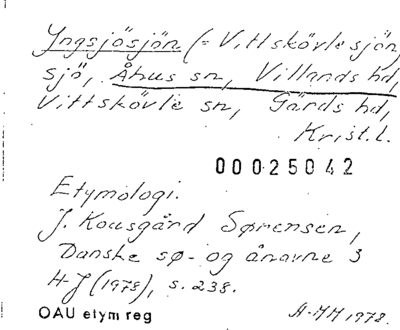 Yngsjösjön (= Vittskövlesjön,
sjö, Åhus sn, Villands hd,
Vittskövle sn, Gärds hd,
Krist.l.
00025042
Etymologi.
J. Kousgård Sørensen,
Danske sø- og ånavne 3
H-J (1978), s. 238.
OAU etym reg A-MH 1978.